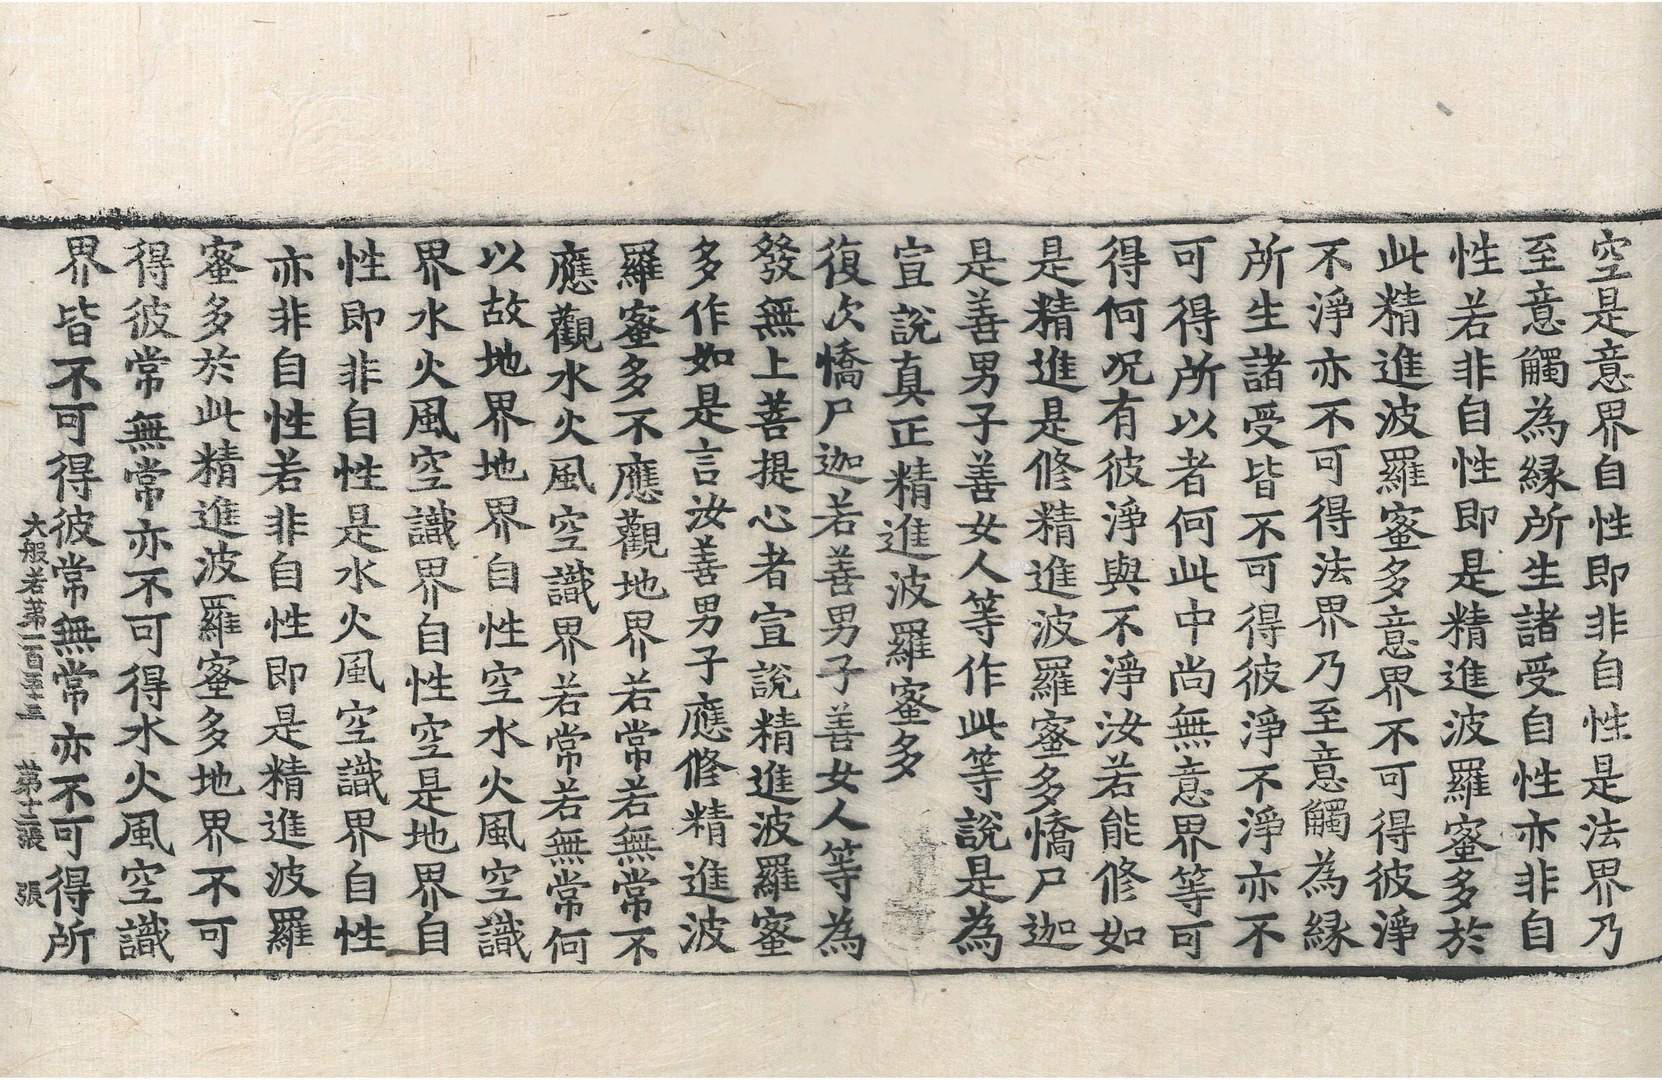 空是意界自性即非自性是法界乃
至意觸為縁所生諸受自性亦非自
性若非自性即是精進波羅蜜多於
此精進波羅蜜多意界不可得彼淨
不淨亦不可得法界乃至意觸為縁
所生諸受皆不可得彼淨不淨亦不
可得所以者何此中尚無意界等可
得何况有彼淨與不淨汝若能修如
是精進是修精進波羅蜜多憍尸迦
是善男子善女人等作此等說是為
宣說真正精進波羅蜜多
復次憍尸迦若善男子善女人等為
發無上菩提心者宣說精進波羅蜜
多作如是言汝善男子應修精進波
羅蜜多不應觀地界若常若無常不
應觀水火風空識界若常若無常何
以故地界地界自性空水火風空識
界水火風空識界自性空是地界自
性即非自性是水火風空識界自性
亦非自性若非自性即是精進波羅
蜜多於此精進波羅蜜多地界不可
得彼常無常亦不可得水火風空識
界皆不可得彼常無常亦不可得所
大般若第一百五十三 第十二張 張